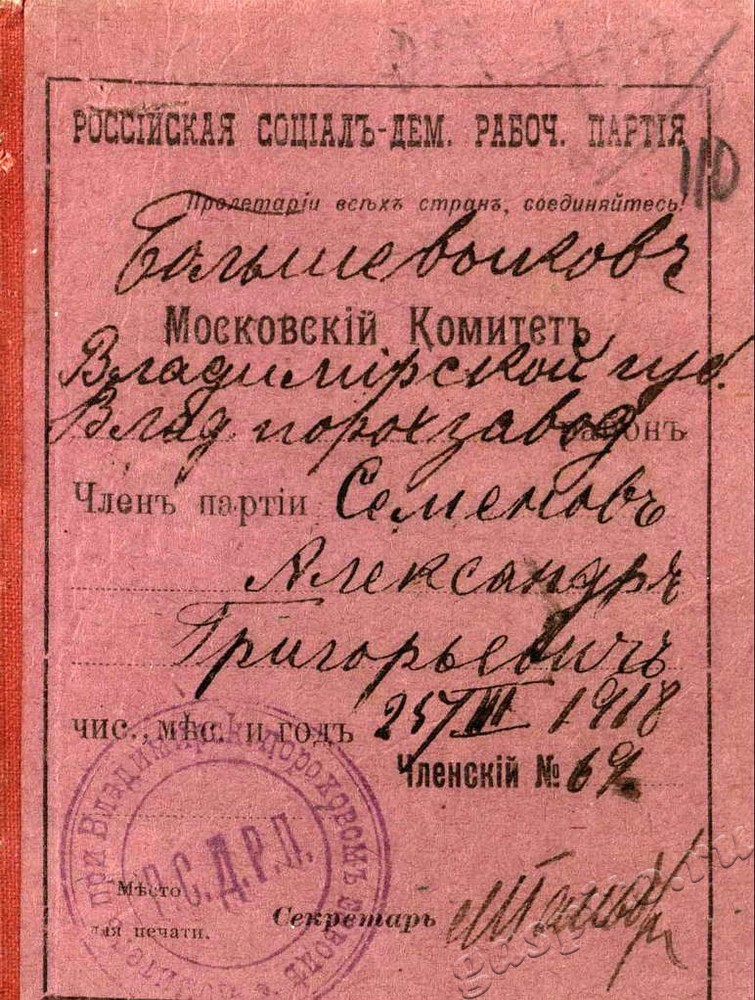 110
РОССІЙСКАЯ СОЦІАЛЪ-ДЕМ. РАБОЧ. ПАРТІЯ
Пролетаріи всѣхъ странъ, соединяйтесь!
Большевиковъ
Московскій Комитетъ
Владимірской губ.
Влад. порохзавод районъ
Членъ партіи Семеновъ
Александръ
Григорьевичъ
чис., мѣс. и годъ 25/III 1918
Членскій № 69
при Владимірск. пороховомъ заводѣ
Р.С.Д.Р.П.
Мѣсто
для печати.
Секретарь